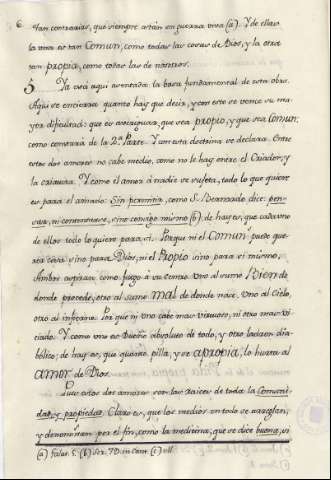 6.
tan contrarias, que siempre están en guerra viva (a). Y de ellas
la una es tan Comun, como todas las cosas de Dios, y la otra
tan propia, como todas las de nosotros.
5 Ya está aqui asentada la basa fundamental de esta obra.
Aqui se encierra quanto hay que decir, y con esto se vence su ma-
yor dificultad: que es averiguar, que sea propio, y que sea Comun;
como constará de la 2.ª Parte. Y aun esta doctrina se declara. Entre
estos dos amores no cabe medio, como no le hay entre el Criador, y
la criatura. Y como el amor á nadie se sujeta, todo lo que quiere
es para el amado: como S. Bernardo dice:
(b) de hay es, que cada uno
de ellos todo lo quiere para si. Porque ni el Comun puede que-
rer cosa sino para Dios, ni el Propio sino para si mismo.
Ambos aspiran como fuego á su centro. Uno al sumo Bien de
donde procede, otro al sumo mal de donde nace. Uno al Cielo,
otro al infierno. Por que ni uno cabe mas ni otro mas vi-
ciado. Y como uno es Dueño absoluto de todo, y otro ladron dia-
bolico; de hay es, que quanto pilla, y se apropia, lo hurta al
amor de Dios.
Estos dos amores son las raices de toda la Comuni-
dad, y propiedad. Claro es, que los medios en todo se arreglan,
y denominan por el fin, como la medicina, que se dice buena, si
(a) Galat. 5. (b) Ser. in Cant. (c)